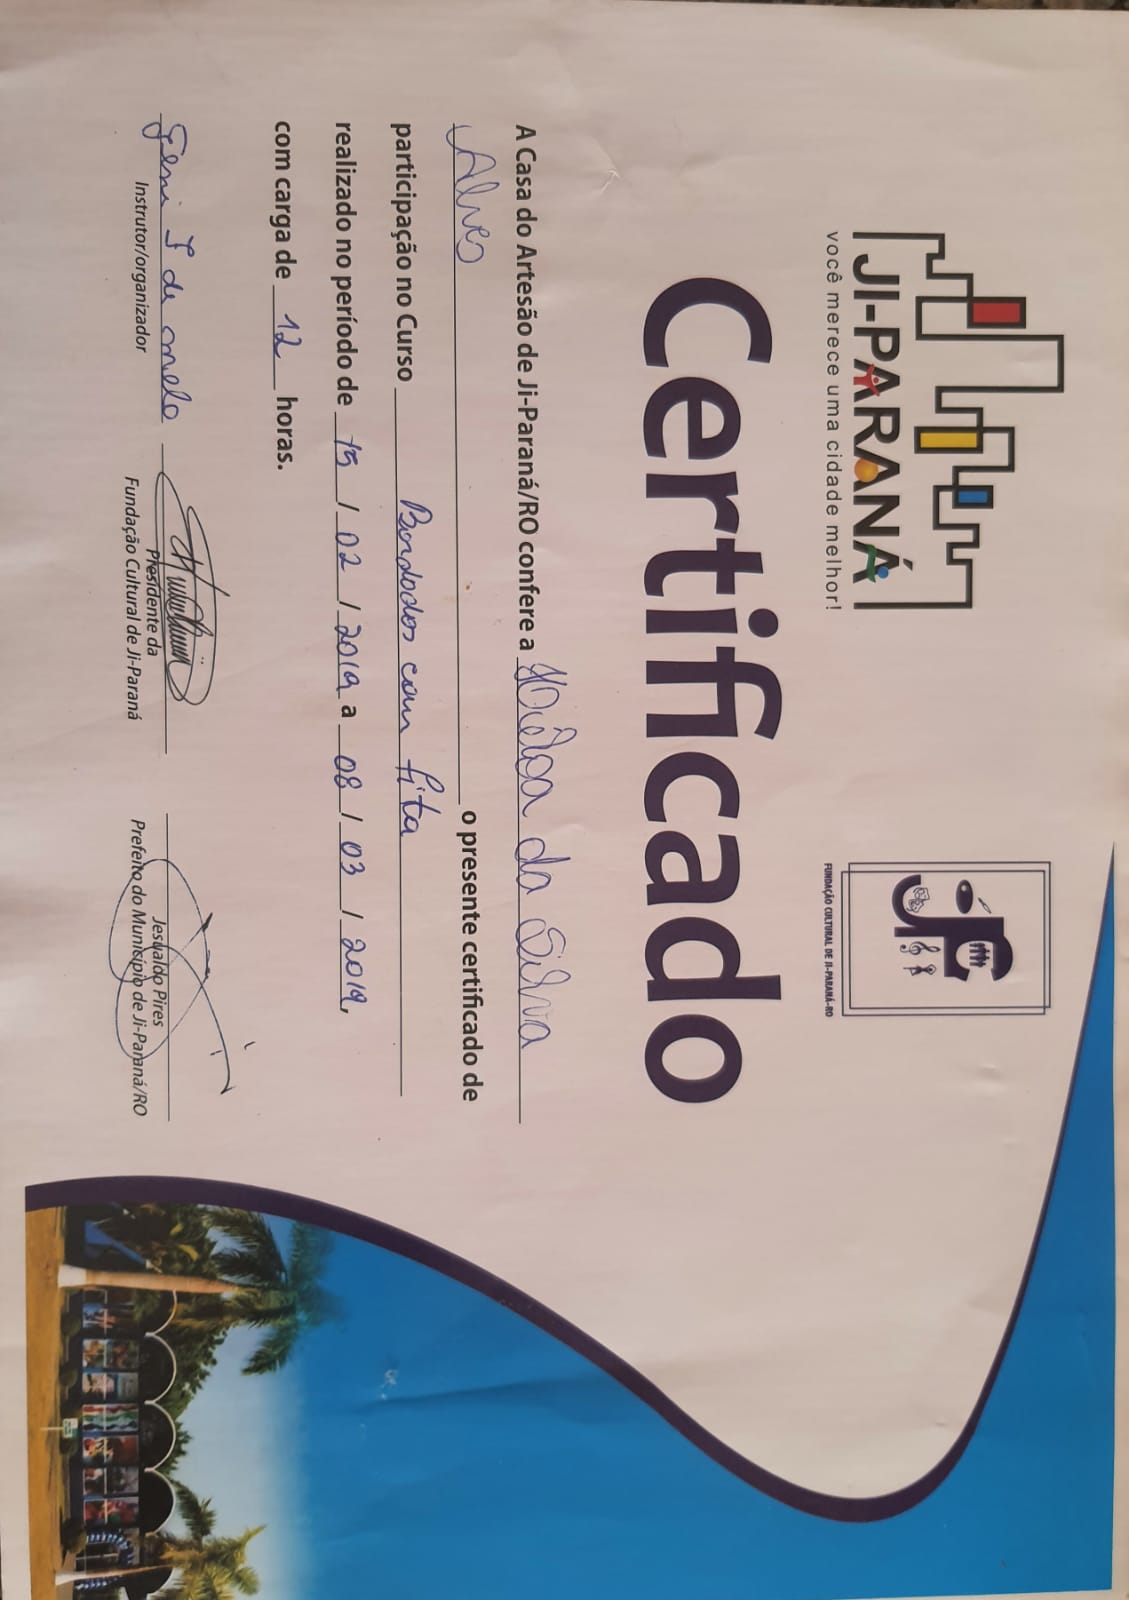 JI-PARANÁ
você merece uma cidade melhor!
FUNDAÇÃO CULTURAL DE JI-PARANÁ-RO
Certificado
A Casa do Artesão de Ji-Paraná/RO confere a da Silva
Alves o presente certificado de
participação no Curso Bordados com fita
realizado no período de 15 / 02 / 2019 a 08 / 03 / 2019,
com carga de 12 horas.
Geni J de melo
Instrutor/organizador
Presidente da
Fundação Cultural de Ji-Paraná
Jesualdo Pires
Prefeito do Município de Ji-Paraná/RO